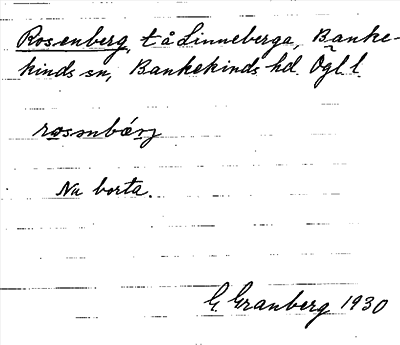 Rosenberg, t å Linneberga, Banke-
kinds sn, Bankekinds hd. Ögl. l.
rosənbærj
Nu borta.
G. Granberg 1930